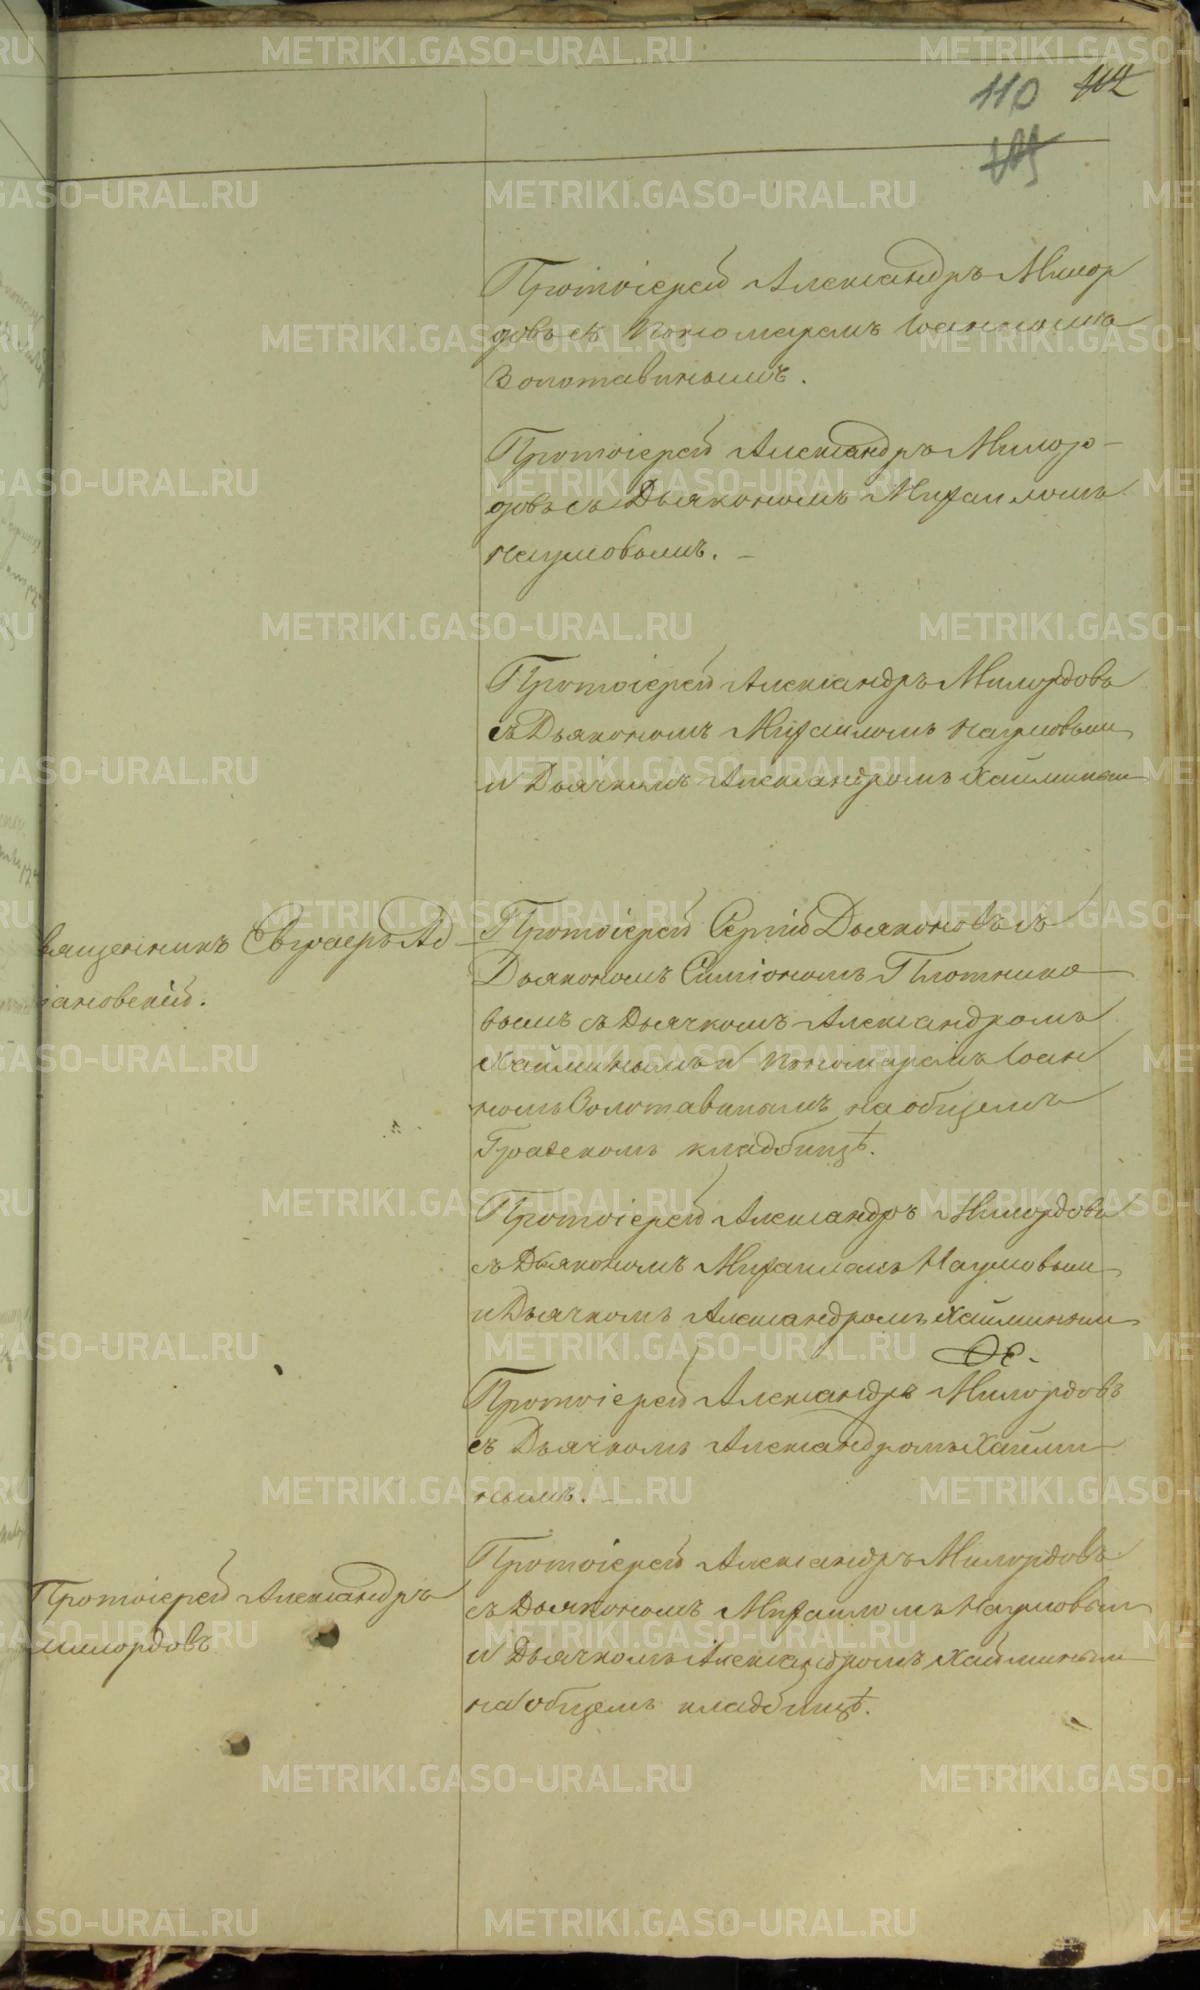 110 112
Протоіерей Александръ Милор
довъ съ Пономаремъ Іоанномъ
Золотавинымъ.
Протоіерей Александръ Милор-
довъ съ Дьякономъ Михаиломъ
Наумовымъ. –
Протоіерей Александръ Милордовъ
съ Дьякономъ Михаиломъ Наумовым
и Дьячкомъ Александромъ Хайминым
вященникъ Евграфъ Ад
Протоіерей Сергій Дьяконовъ съ
Дьякономъ Симіономъ Плотнико
ановскій.
вымъ съ Дьячкомъ Александромъ
Хайминымъ и Пономаремъ Іоан
номъ Золотавинымъ на общемъ
Градскомъ кладбищѣ.
Протоіерей Александръ Милордовъ
съ Дьякономъ Михаиломъ Наумовым
и Дьячкомъ Александромъ Хайминым
Протоіерей Александръ Милордовъ
съ Дьячкомъ Александромъ Хайми
нымъ. –
Протоіерей Александръ Милордовъ
Протоіерей Александръ
съ Дьякономъ Михаиломъ Наумовым
Милордовъ
и Дьячкомъ Александромъ Хайминым
на общемъ кладбищѣ.
METRIKI.GASO-URAL.RU